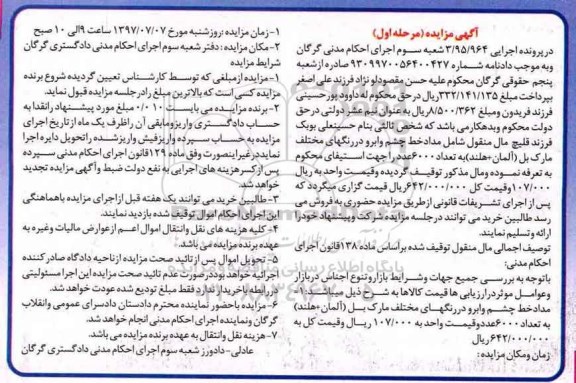 آگهی مزایده (مرحله اول)
در پرونده اجرایی ۳/۹۵/۹۶۴ شعبه سوم اجرای احکام مدنی گرگان
و به موجب دادنامه شماره ۹۳۰۹۹۷۰۰۵۶۴۰۰۴۲۷ صادره از شعبه
پنجم حقوقی گرگان محکوم علیه حسن مقصودلو نژاد فرزند علی اصغر
بپرداخت مبلغ ۳۳۲/۱۴۱/۱۳۵ ریال در حق محکوم له داوود پور حسینی
فرزند فریدون و مبلغ ۸/۵۰۰/۳۶۲ ریال به عنوان نیم عشر دولتی در حق
دولت محکوم و بدهکار می باشد که شخص ثالثی بنام حسینعلی بویک
فرزند قلیچ مال منقول شامل مداد خط چشم و ابرو در رنگهای مختلف
مارک بل (آلمان-هلند) به تعداد ۶۰۰۰ عدد را جهت استیفای محکوم
به تعرفه نموده و مال مذکور توقیف گردیده و قیمت واحد به ریال
۱۰۷/۰۰۰ و قیمت کل ۶۴۲/۰۰۰/۰۰۰ ریال قیمت گزاری میگردد که
پس از اجرای تشریفات قانونی از طریق مزایده حضوری به فروش می
رسد طالبین خرید می توانند در جلسه مزایده شرکت و پیشنهاد خود را
ارائه و تسلیم نمایند.
توصیف اجمالی مال منقول توقیف شده بر اساس ماده ۱۳۸ قانون اجرای
احکام مدنی:
با توجه به بررسی جمیع جهات و شرایط بازار و تنوع اجناس در بازار
و عوامل موثر در ارزیابی ها قیمت کالاها به شرح ذیل میباشد: ۱-
مداد خط چشم و ابرو در رنگهای مختلف مارک بل (آلمان-هلند)
به تعداد ۶۰۰۰ عدد و قیمت واحد به ۱۰۷/۰۰۰ ریال و قیمت کل به
۶۴۲/۰۰۰/۰۰۰ ریال
زمان و مکان مزایده:
۱- زمان مزایده: روز شنبه مورخ ۱۳۹۷/۰۷/۰۷ ساعت ۹ الی ۱۰ صبح
۲- مکان مزایده: دفتر شعبه سوم اجرای احکام مدنی دادگستری گرگان
شرایط مزایده
۱- مزایده از مبلغی که توسط کارشناس تعیین گردیده شروع برنده
مزایده کسی است که بالاترین مبلغ را در جلسه مزایده قبول نماید.
۲- برنده مزایده می بایست ۰/۰۱۰ مبلغ مورد پیشنهاد را نقدا به
حساب دادگستری واریز و مابقی آن را ظرف یک ماه از تاریخ اجرای
مزایده به حساب سپرده واریز فیش واریز شده را تحویل دایره اجرا
نماید در غیر اینصورت وفق ماده ۱۲۹ قانون اجرای احکام مدنی سپرده
پس از کسر هزینه های اجرایی به نفع دولت ضبط و آگهی مزایده تجدید
خواهد شد.
۳- طالبین خرید می توانند یک هفته قبل از اجرای مزایده با هماهنگی
این اجرای احکام اموال توقیف شده بازدید نمایند.
۴- کلیه هزینه های نقل و انتقال اموال اعم از عوارض مالیات و غیره به
عهده برنده مزایده می باشد.
۵- تحویل اموال پس از تائید صحت مزایده از ناحیه دادگاه صادر کننده
اجرائیه خواهد بود در صورت عدم تائید صحت مزایده این اجرا مسئولیتی
در رابطه با خریدار ندارد فقط مبلغ تودیع شده عودت خواهد شد.
۶- مزایده با حضور نماینده محترم دادستان دادسرای عمومی و انقلاب
گرگان و نماینده اجرای احکام مدنی انجام خواهد شد.
۷- هزینه نقل و انتقال به عهده برنده مزایده می باشد.
عادلی- دادورز شعبه سوم اجرای احکام مدنی دادگستری گرگان